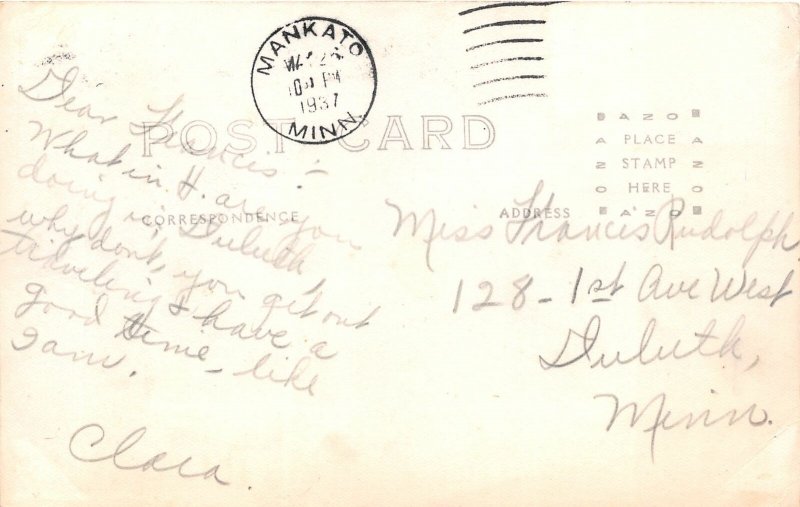 MANKATO
MAY 25
10 PM
1937
MINN.
POST CARD
AZO
PLACE
STAMP
HERE
AZO
CORRESPONDENCE
ADDRESS
Dear Francis:-
What in H. are you
doing in Duluth,
why dont, you get out
traveling & have a
good time - like
I am.
Clara.
Miss Francis Rudolph,
128 - 1st Ave West
Duluth,
Minn.